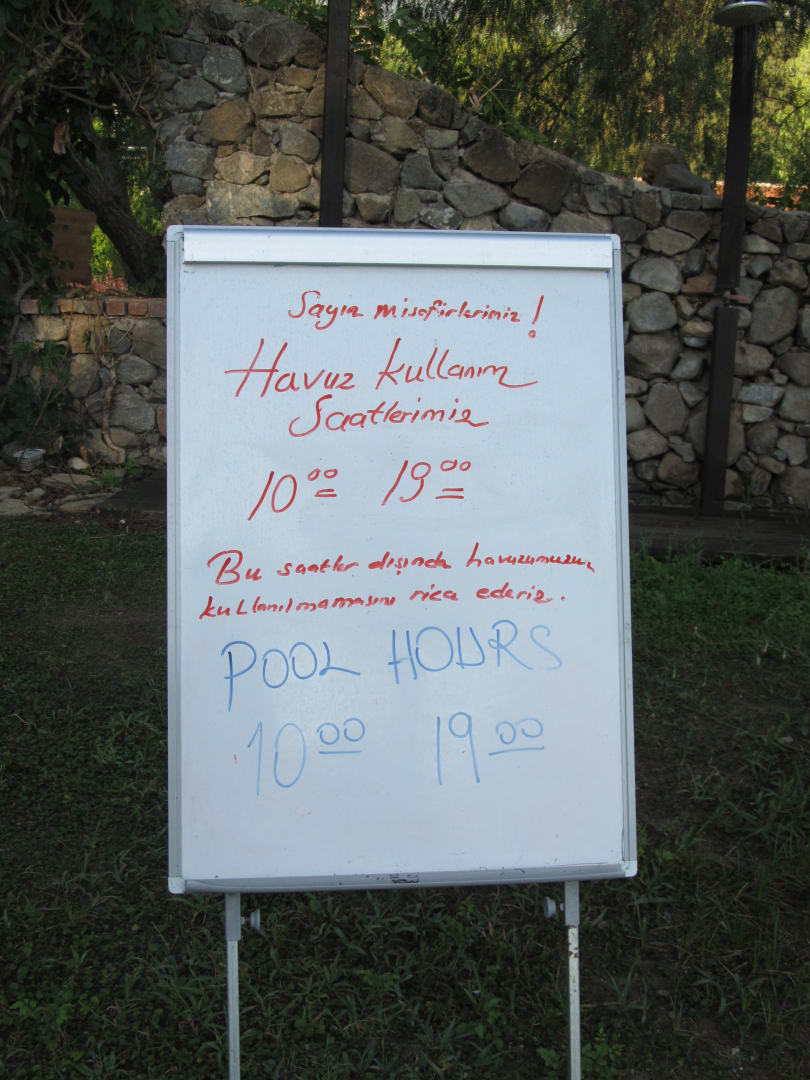 Sayın misafirlerimiz!
Havuz kullanım
Saatlerimiz
10 00 19 00
Bu saatler dışında havuzumuzu,
kullanılmamasını rica ederiz.
POOL HOURS
10 00 19 00